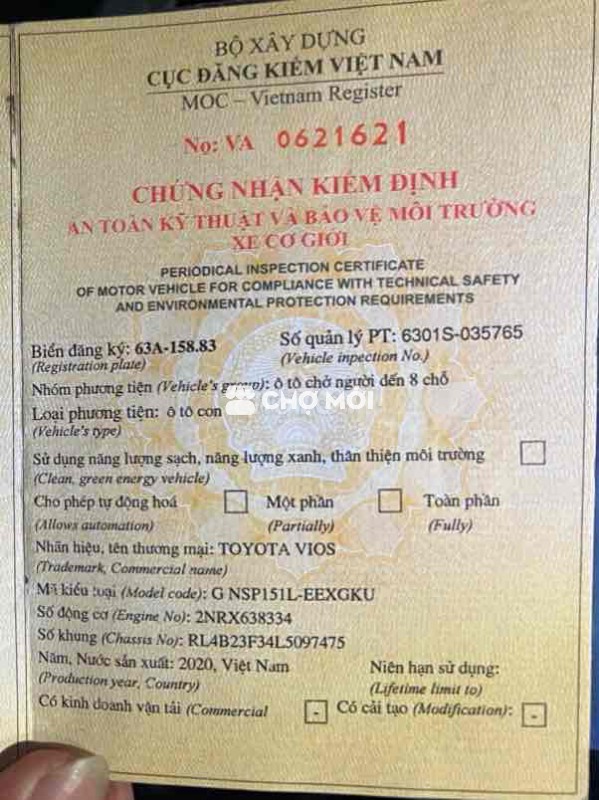 BỘ XÂY DỰNG
CỤC ĐĂNG KIỂM VIỆT NAM
MOC – Vietnam Register
No: VA 0621621
CHỨNG NHẬN KIỂM ĐỊNH
AN TOÀN KỸ THUẬT VÀ BẢO VỆ MÔI TRƯỜNG
XE CƠ GIỚI
PERIODICAL INSPECTION CERTIFICATE
OF MOTOR VEHICLE FOR COMPLIANCE WITH TECHNICAL SAFETY
AND ENVIRONMENTAL PROTECTION REQUIREMENTS
Biển đăng ký: 63A-158.83 Số quản lý PT: 6301S-035765
(Registration plate) (Vehicle inpection No.)
Nhóm phương tiện (Vehicle's group): ô tô chở người đến 8 chỗ
CHỢ MỚI
Loại phương tiện: ô tô con
(Vehicle's type)
Sử dụng năng lượng sạch, năng lượng xanh, thân thiện môi trường
(Clean, green energy vehicle)
Cho phép tự động hoá Một phần Toàn phần
(Allows automation) (Partially) (Fully)
Nhãn hiệu, tên thương mại: TOYOTA VIOS
(Trademark, Commercial name)
Mã kiểu loại (Model code): G NSP151L-EEXGKU
Số động cơ (Engine No): 2NRX638334
Số khung (Chassis No): RL4B23F34L5097475
Năm, Nước sản xuất: 2020, Việt Nam Niên hạn sử dụng:
(Production year, Country) (Lifetime limit to)
Có kinh doanh vận tải (Commercial - Có cải tạo (Modification): -